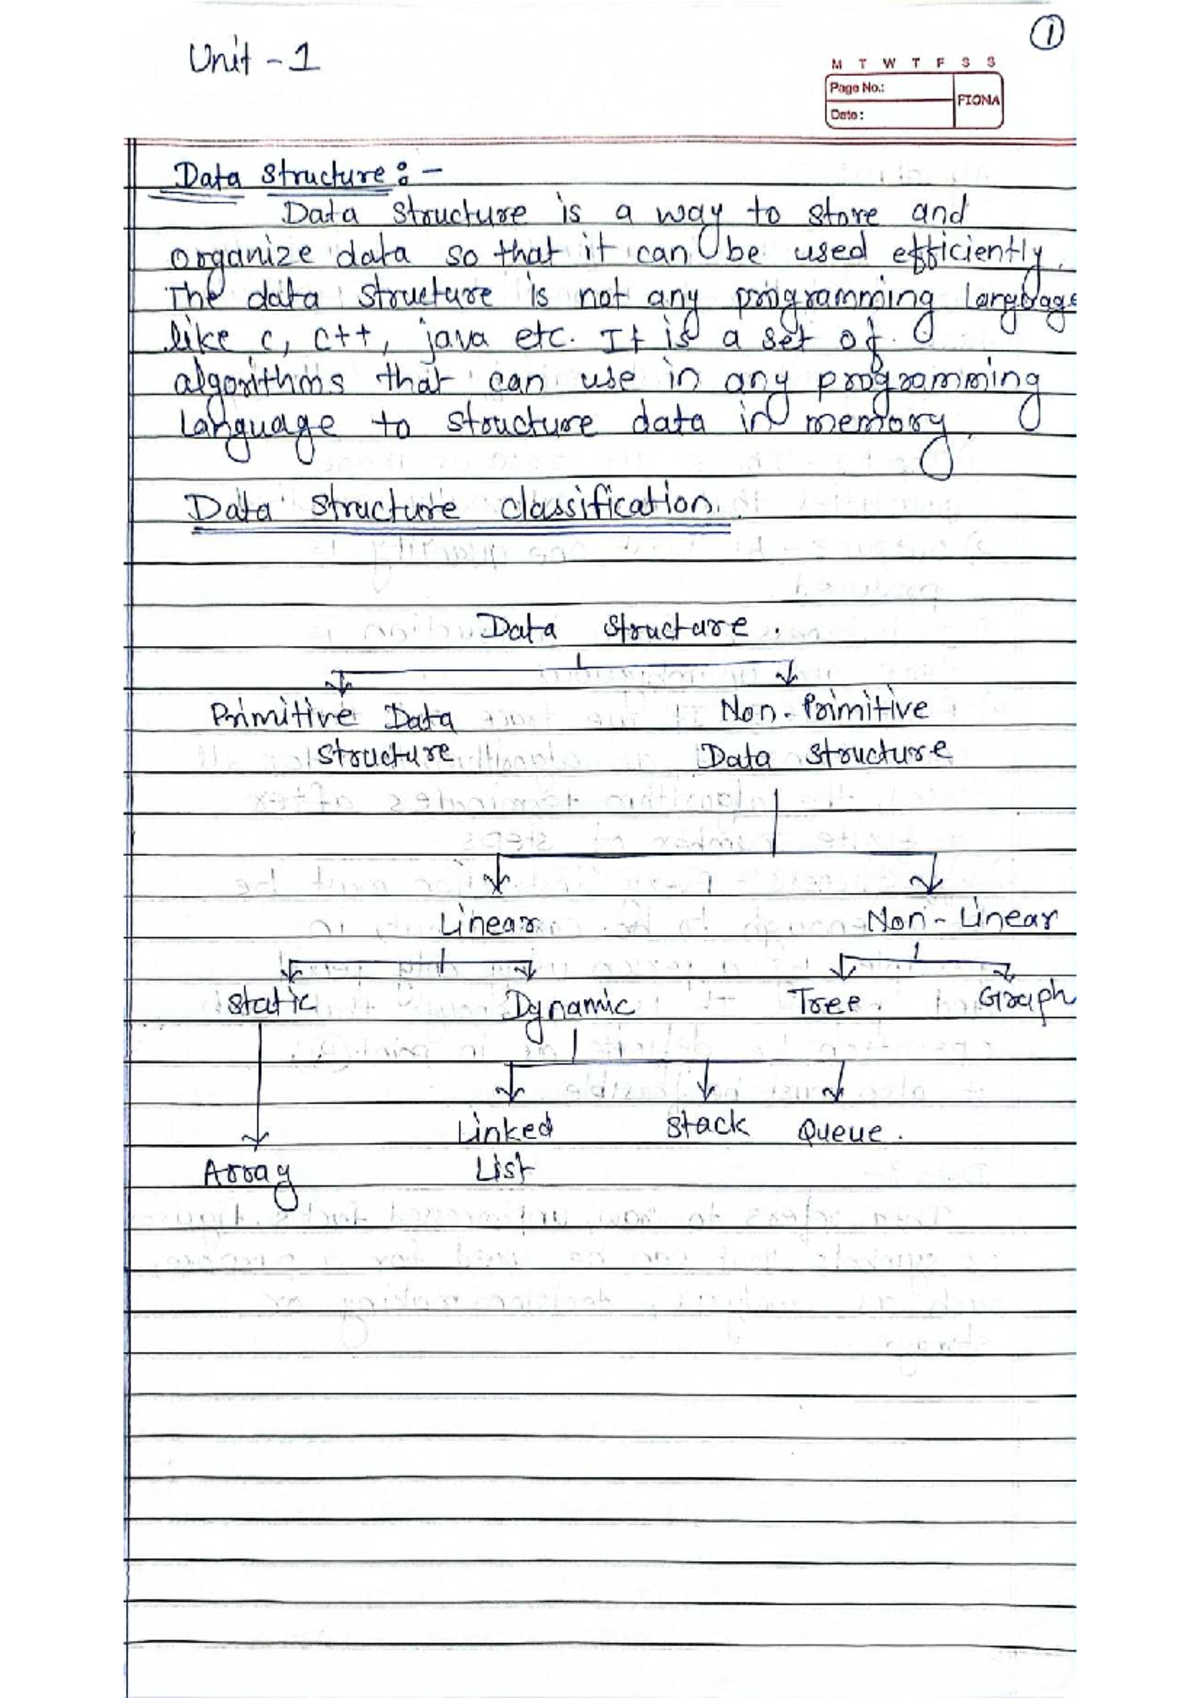 1
Unit - 1
M T W T F S S
Page No.:
FIONA
Date:
Data Structure :-
Data Structure is a way to store and
organize data so that it can be used efficiently.
The data structure is not any programming language
like c, c++, java etc. It is a set of
algorithms that can use in any programming
language to structure data in memory.
Data Structure classification.
Data Structure.
Primitive Data Non-Primitive
Structure Data Structure
Linear Non-Linear
Static Dynamic Tree. Graph
Linked Stack Queue.
Array List